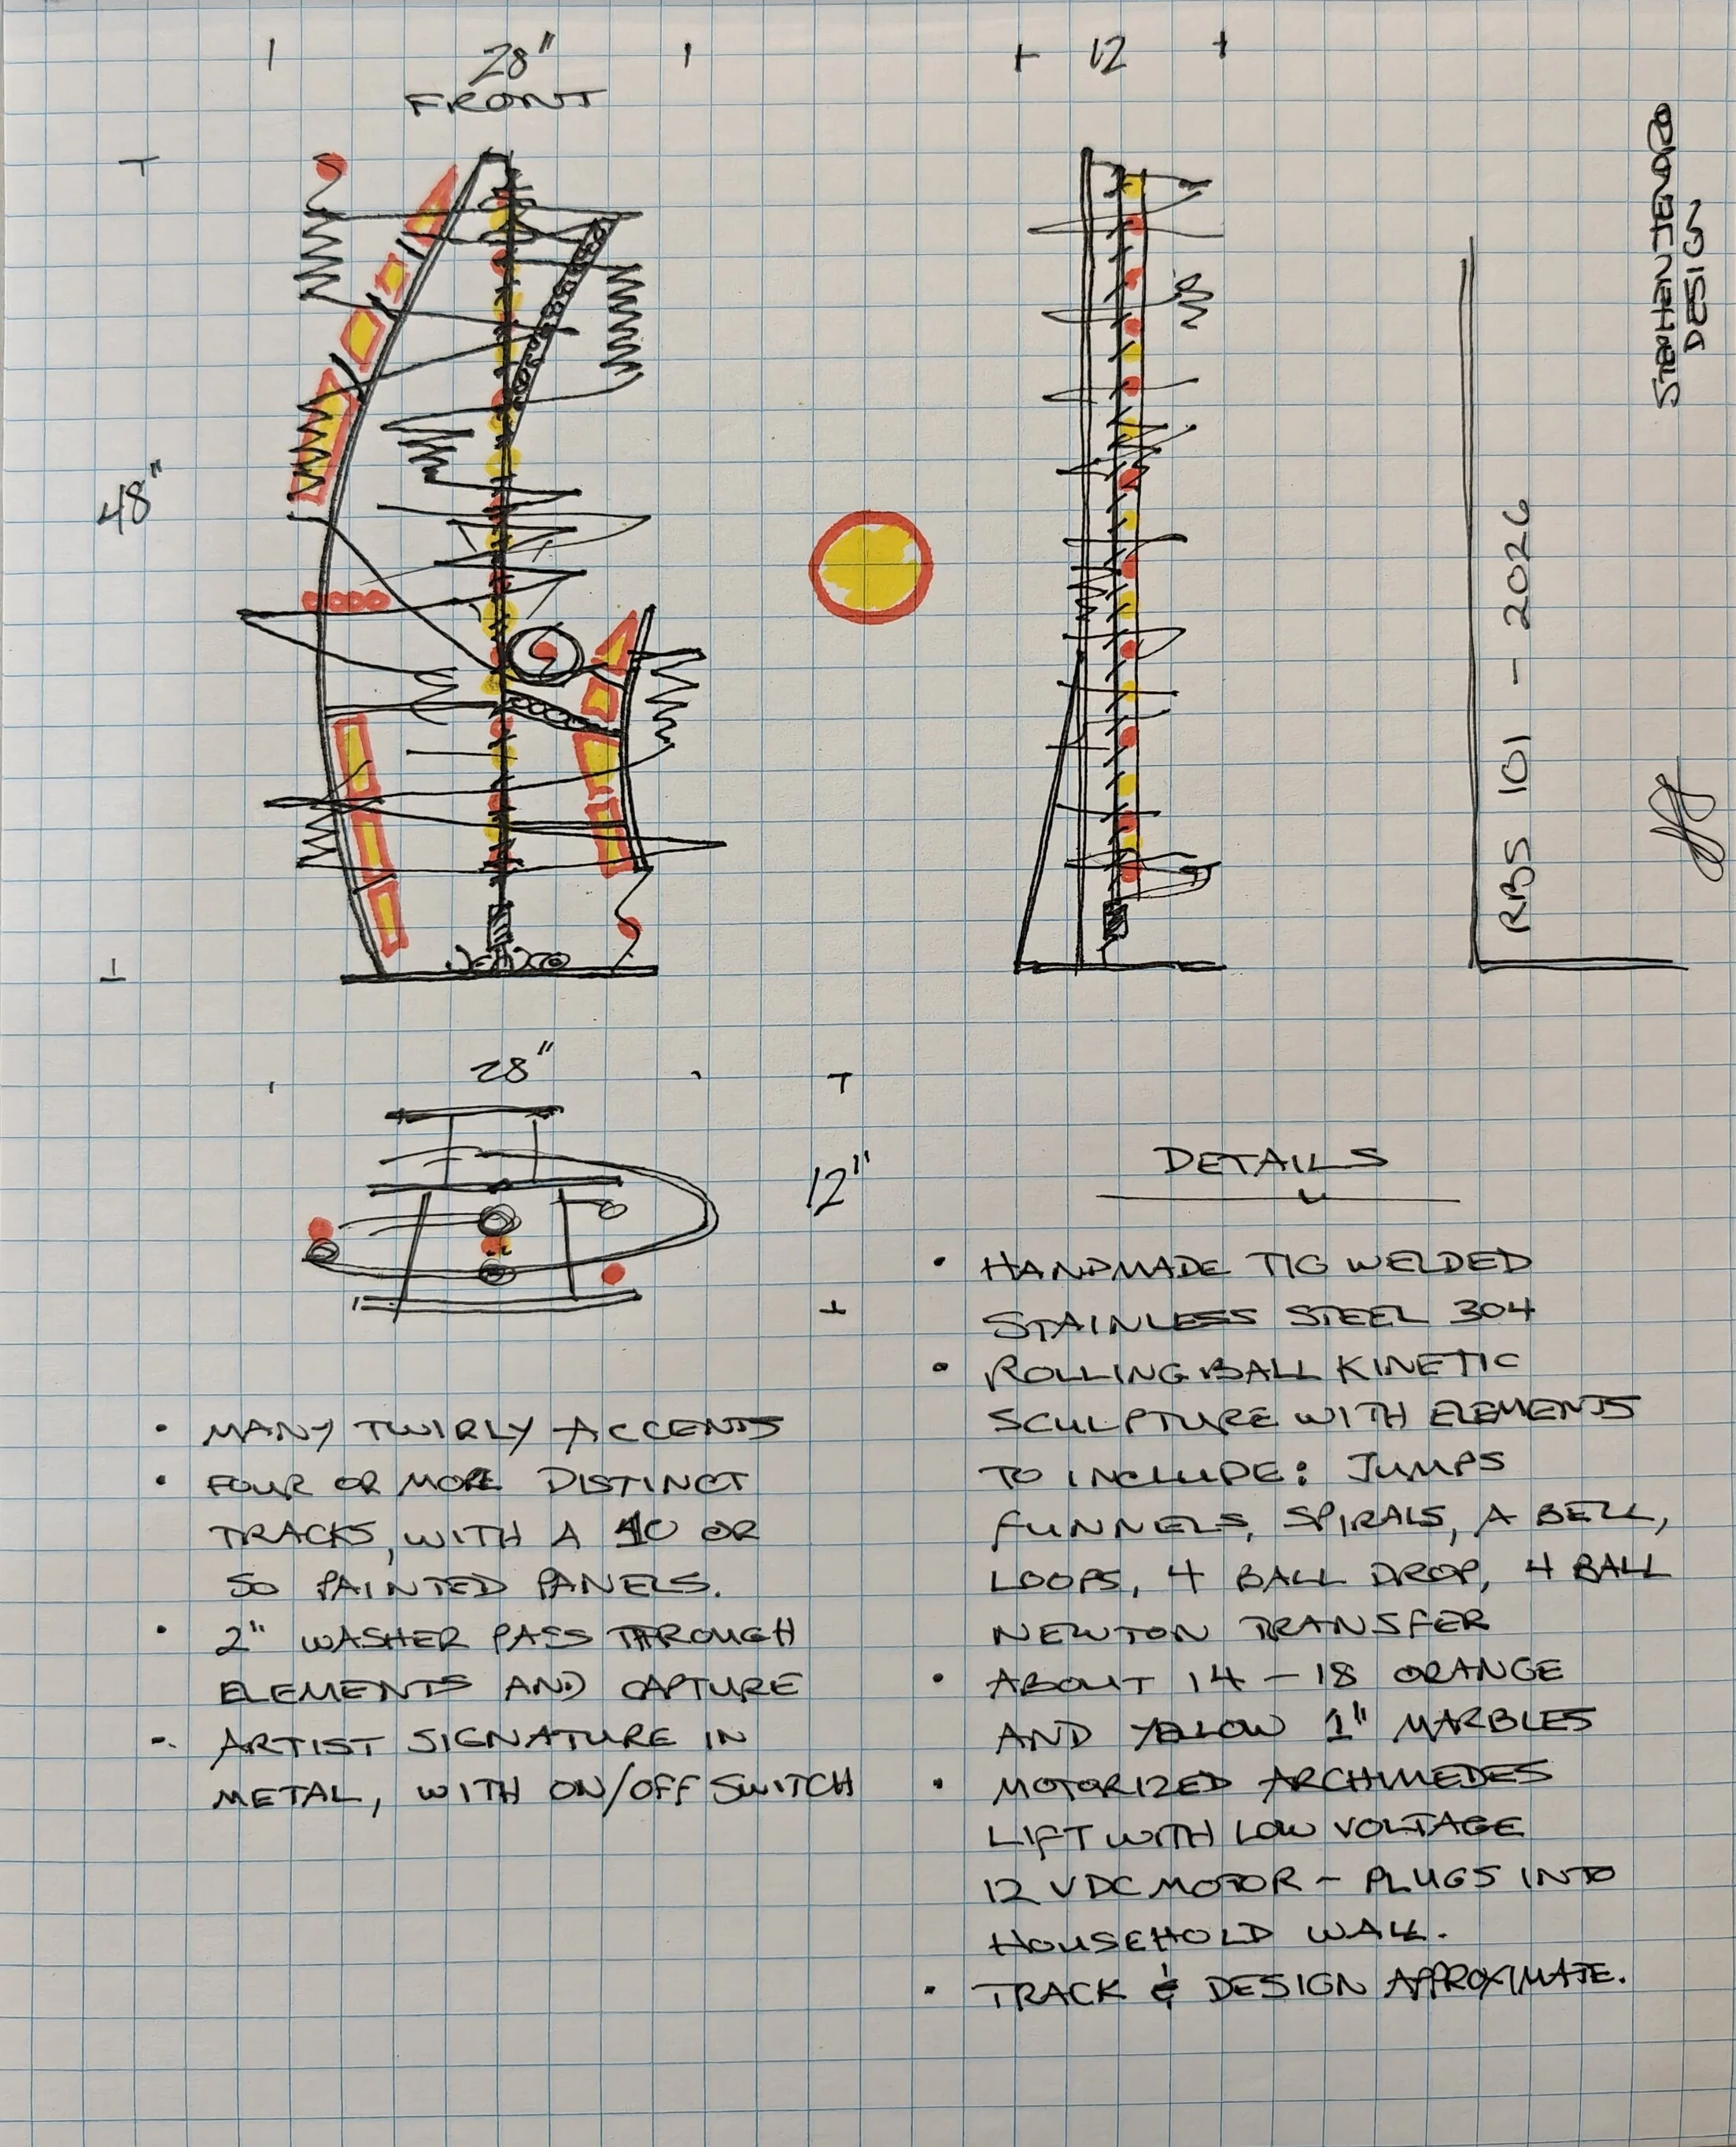 28"
FRONT
12
48"
STEPHEN JENDRO
DESIGN
RBS 101 - 2026
28"
12"
DETAILS
• HANDMADE TIG WELDED
STAINLESS STEEL 304
• ROLLING BALL KINETIC
SCULPTURE WITH ELEMENTS
TO INCLUDE: JUMPS
FUNNELS, SPIRALS, A BELL,
LOOPS, 4 BALL DROP, 4 BALL
NEWTON TRANSFER
• ABOUT 14 - 18 ORANGE
AND YELLOW 1" MARBLES
• MOTORIZED ARCHIMEDES
LIFT WITH LOW VOLTAGE
12 VDC MOTOR - PLUGS INTO
HOUSEHOLD WALL.
• TRACK & DESIGN APPROXIMATE.
• MANY TWIRLY ACCENTS
• FOUR OR MORE DISTINCT
TRACKS, WITH A 10 OR
SO PAINTED PANELS.
• 2" WASHER PASS THROUGH
ELEMENTS AND CAPTURE
- ARTIST SIGNATURE IN
METAL, WITH ON/OFF SWITCH